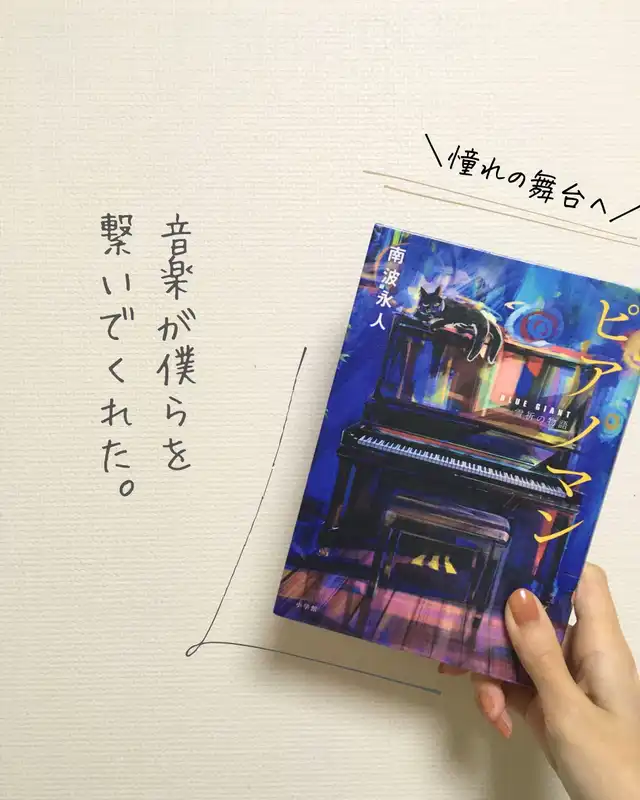 憧れの舞台へ
音楽が僕らを
繋いでくれた。
南波永人
ピアノマン
BLUE GIANT
雪祈の物語
小学館